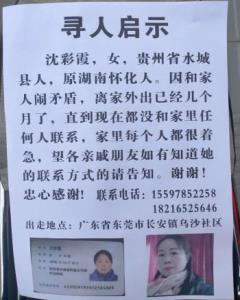 寻人启示
沈彩霞，女，贵州省水城
县人，原湖南怀化人。因和家
人闹矛盾，离家外出已经几个
月了，直到现在都没和家里任
何人联系，家里每个人都很着
急，望各亲戚朋友如有知道她
的联系方式的请告知。谢谢！
忠心感谢！联系电话：15597852258
18216525646
出走地点：广东省东莞市长安镇乌沙社区